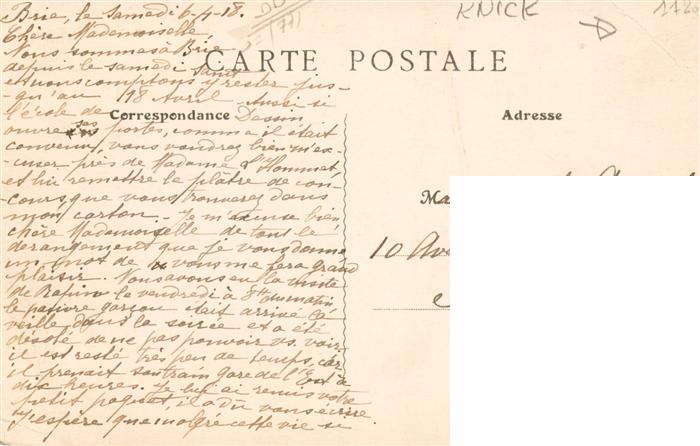 Brie, le Samedi 6-4-18.
Chère Mademoiselle,
Nous sommes à Brie
depuis le samedi saint
et nous comptons y rester jus-
qu'au 18 Avril. Aussi si
l'école de Dessin
ouvre ses portes, comme il était
convenu, vous voudrez bien m'ex-
cuser près de Madame L'Hommet,
et lui remettre le plâtre de con-
cours que vous trouverez dans
mon carton. Je m'excuse bien
chère Mademoiselle de tout le
dérangement que je vous donne
un mot de vous me fera grand
plaisir. Nous avons eu la visite
de Rapin le vendredi à 8h du matin
le pauvre garçon était arrivé la
veille dans la soirée et a été
désolé de ne pas pouvoir vs. voir
il est resté très peu de temps, car
il prenait son train gare de l'Est à
dix heures. Je lui ai remis votre
petit paquet, il a dû vous écrire
J'espère que malgré cette vie si
KNICK
CARTE POSTALE
Correspondance
Adresse
Ma
10 Av